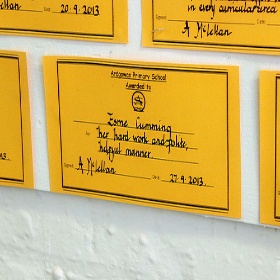 20.9.2013
in every curricular area
A McLellan
Ardgowan Primary School
Awarded to
Esme Cumming
for her hard work and polite,
helpful manner.
Signed A McLellan
Date 27.9.2013.